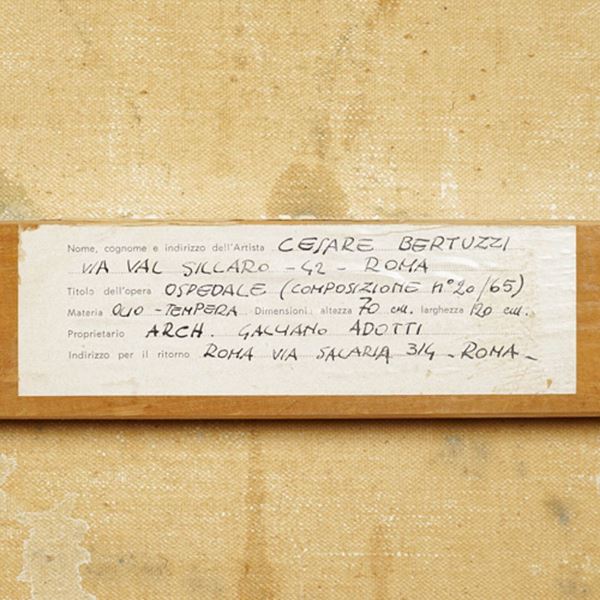 Nome, cognome e indirizzo dell'Artista CESARE BERTUZZI
VIA VAL SILLARO - 42 - ROMA
Titolo dell'opera OSPEDALE (COMPOSIZIONE n°20/65)
Materia OLIO - TEMPERA. Dimensioni: altezza 70 cm. larghezza 120 cm.
Proprietario ARCH. GALLIANO ADOTTI
Indirizzo per il ritorno ROMA VIA SALARIA 314 - ROMA -